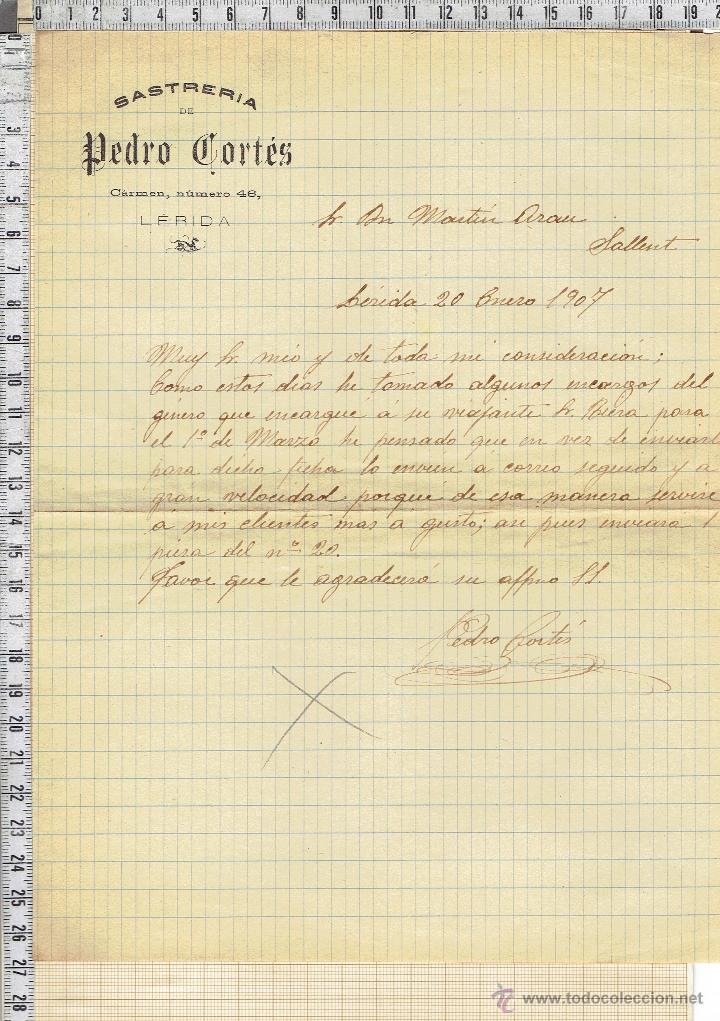 SASTRERIA
DE
Pedro Cortés
Cármen, número 46,
LERIDA
Sr. Dn Martin Arau
Sallent
Lérida 20 Enero 1907
Muy Sr. mio y de toda mi consideración;
Como estos dias he tomado algunos encargos del
género que encargué á su viajante Sr. Riera para
el 1º de Marzo he pensado que en vez de enviarl
para dicha fecha lo envien á correo seguido y a
gran velocidad porque de esa manera serviré
á mis clientes mas á gusto; asi pues enviará 1
pieza del nº 20.
Favor que le agradecerá su affmo SS.
Pedro Cortés
0 1 2 3 4 5 6 7 8 9 10 11 12 13 14 15 16 17 18 19 2
0 3 4 5 6 7 8 9 10 11 12 13 14 15 16 17 18 19 20 21 22 23 24 25 26 27 28
www.todocoleccion.net